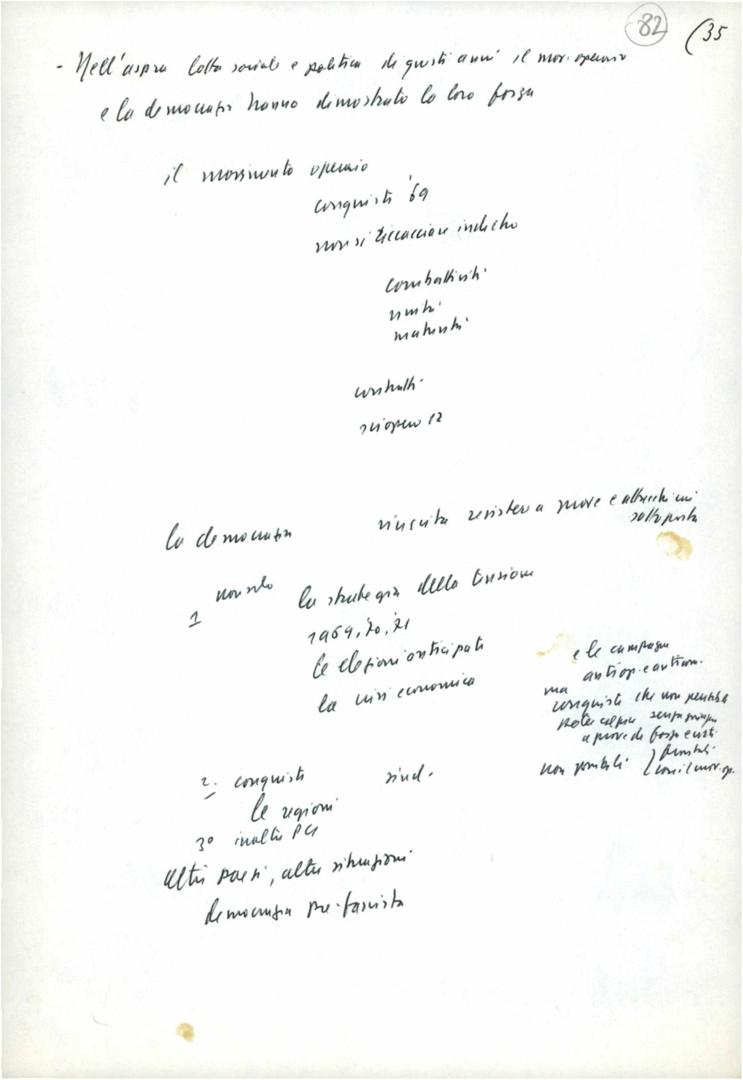 82
(35
- Nell'aspra lotta sociale e politica di questi anni il mov. operaio
e la democrazia hanno dimostrato la loro forza
il movimento operaio
conquiste '69
non si ricacciare indietro
combattività
unità
maturità
contratti
sciopero 12
la democrazia riuscita resistere a prove e attacchi cui
sottoposta
1 non solo la strategia della tensione
1969, '70, '71
le elezioni anticipate
la crisi economica
e le campagne
antiop. e
ma
conquiste che non
a prove di forza
non possibili
con il mov. op.
2. conquiste sind.
le regioni
3° inoltre PCI
altri paesi, altre situazioni
democrazia pre-fascista